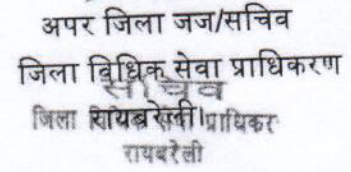 अपर जिला जज/सचिव
जिला विधिक सेवा प्राधिकरण
सचिव
रायबरेली।
जिला सेवा प्राधिकर
रायबरेली